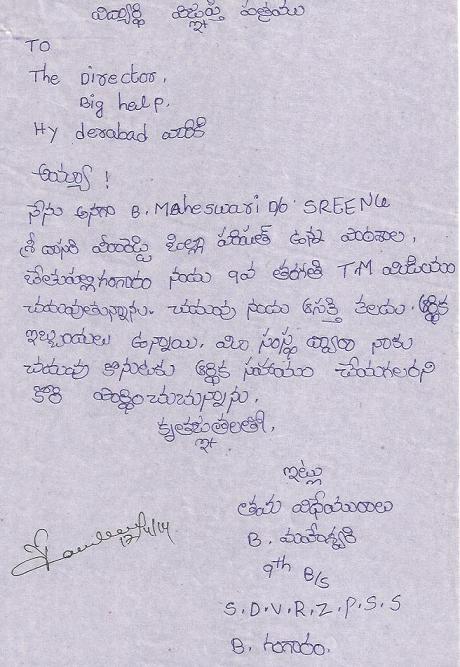 విద్యార్థి విజ్ఞప్తి పత్రము
TO
The Director,
Big help,
Hyderabad వారికి
అయ్యా !
నేను అనగా B. Maheswari D/o SREENU
శ్రీ దాసరి వీరారెడ్డి జిల్లా పరిషత్ ఉన్నత పాఠశాల,
బేతుపల్లిగంగారం నందు 9వ తరగతి T.M మీడియం
చదువుతున్నాను. చదువు నందు ఆసక్తి కలదు. ఆర్థిక
ఇబ్బందులు ఉన్నాయి. మీ సంస్థ ద్వారా నాకు
చదువు కొనుటకు ఆర్థిక సహాయం చేయగలరని
కోరి ప్రార్థించుచున్నాను.
కృతజ్ఞతలతో,
ఇట్లు
తమ విధేయురాలు
B. మహేశ్వరి
9th B/S
S.D.V.R.Z.P.S.S
B. గంగారం.